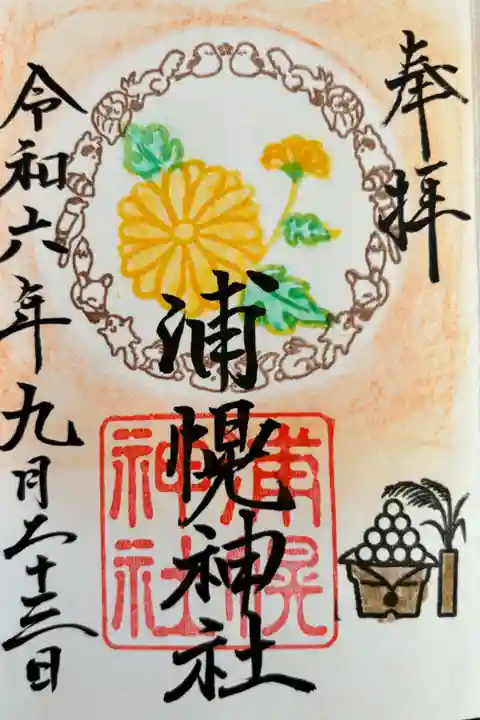 奉拝
浦幌神社
浦幌
神社
令和六年九月二十三日